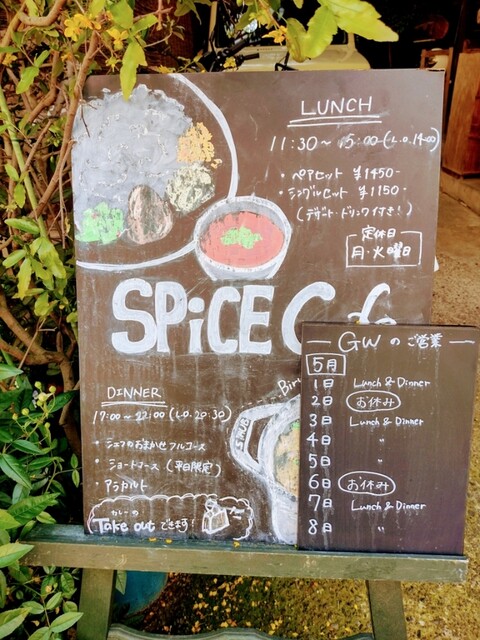 LUNCH
11:30〜15:00(L.O.14:00)
・ペアセット ¥1450-
・シングルセット ¥1150-
(デザート・ドリンク付き!)
定休日
月・火曜日
SPiCE Cafe
DINNER
17:00〜22:00(L.O.20:30)
・シェフのおまかせフルコース
・ショートコース(平日限定)
・アラカルト
カレーの
Take out できます!
Bir
SPICE
— GWのご営業 —
5月
1日 Lunch & Dinner
2日 お休み
3日 Lunch & Dinner
4日 〃
5日 〃
6日 お休み
7日 Lunch & Dinner
8日 〃